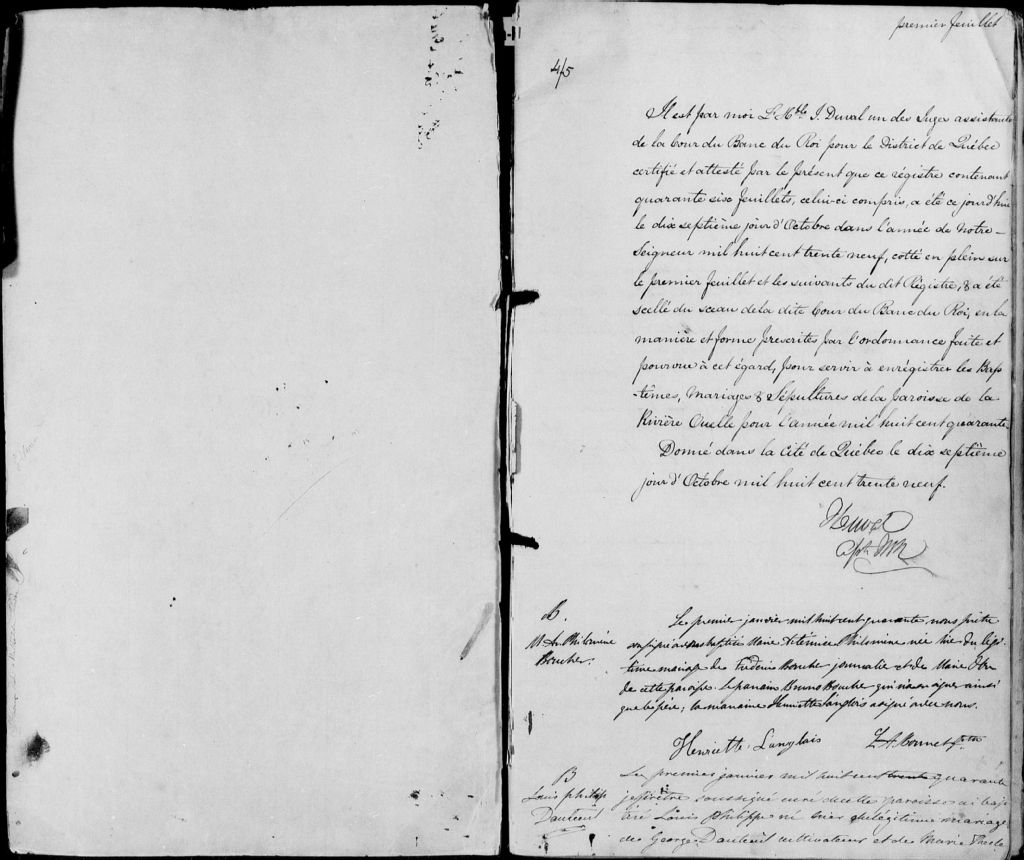 premier feuillet
4/5
Il est par moi L'Hble J. Duval un des Juges assistants
de la Cour du Banc du Roi pour le District de Québec
certifié et attesté par le présent que ce régistre contenant
quarante six feuillets, celui-ci compris, a été ce jourd'hui
le dix septième jour d'Octobre dans l'année de Notre-
Seigneur mil huit cent trente neuf, cotté en plein sur
le premier feuillet et les suivants du dit Régistre, & a été
scellé du sceau de la dite Cour du Banc du Roi, en la
manière et forme prescrites par l'ordonnance faite et
pourvue à cet égard, pour servir à enrégistrer les Bap
-têmes, Mariages & Sépultures de la paroisse de la
Rivière Ouelle pour l'année mil huit cent quarante.
Donné dans la Cité de Québec le dix septième
jour d'Octobre mil huit cent trente neuf.
B.
Philomène
Boucher.
Le premier janvier mil huit cent quarante, nous prêtre
soussigné avons baptisé Marie Philomène née hier du légi
time mariage de Frédéric Boucher journalier et de Marie
de cette paroisse. le parrain Bruno Boucher qui n'a su signer ainsi
que le père; la marraine Henriette Langlois a signé avec nous.
Henriette Langlais
B
Louis philipp
Dauteuil
Le premier janvier mil huit cent trente quarante
je prêtre soussigné curé de cette paroisse ai bap
tisé Louis Philippe né hier du légitime mariage
de George Dauteuil cultivateur et de Marie